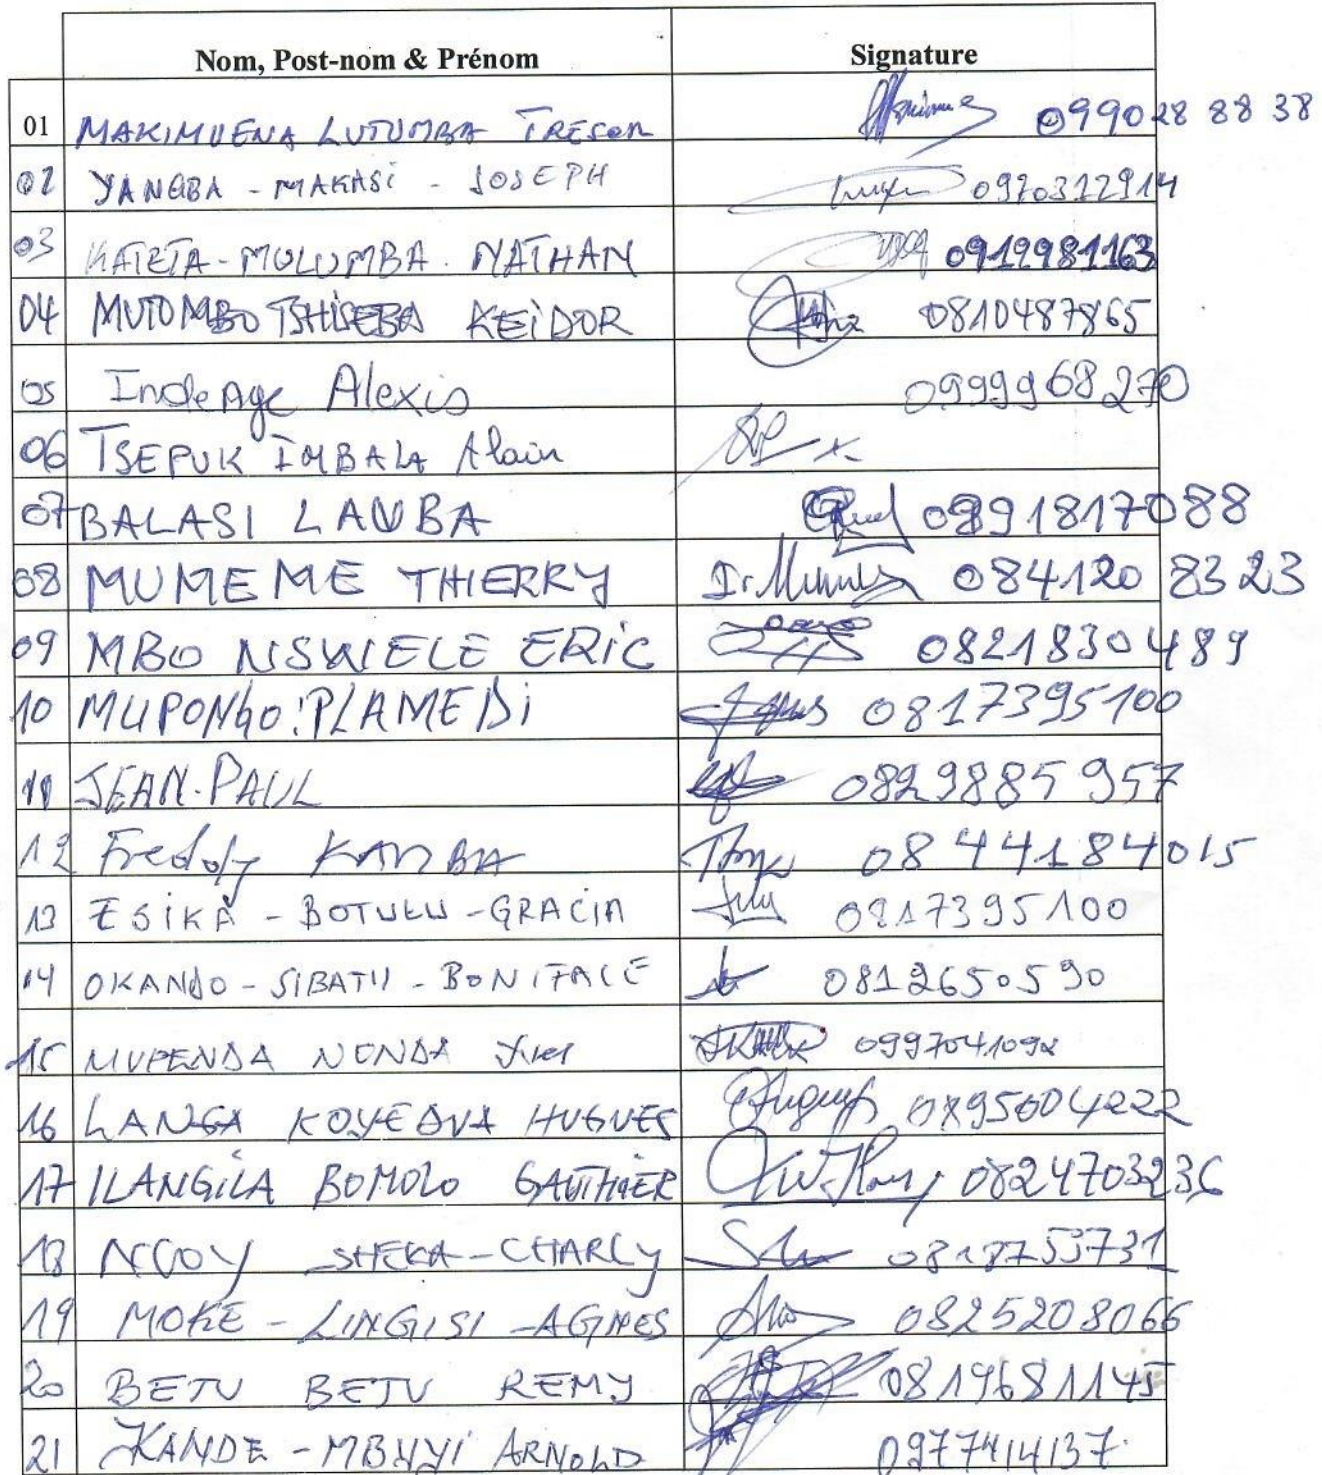 Nom, Post-nom & Prénom Signature
01 MAKIMUENA LUTUMBA TRESOR 0990288838
02 YANGBA - MAKASI - JOSEPH 0970312914
03 KATETA - MULUMBA . NATHAN 0912981163
04 MUTOMBO TSHISEBA KEIDOR 0810487865
05 Alexis 0999968270
06 TSEPUK IMBALA Alain
07 BALASI LAUBA 0991817088
08 MUMEME THIERRY 0841208323
09 MBO NSWIELE ERIC 0821830489
10 MUPONGO PLAMEDI 0817395100
11 JEAN-PAUL 0829885957
12 Freddy KAMBA 0844184015
13 ESIKA - BOTULU - GRACIA 0817395100
14 OKANDO - SIBATU - BONIFACE 0812650590
15 MUPENDA NONDA 0997041092
16 LANGA KOYEDVA HUGUES 0895604222
17 ILANGILA BOMOLO GAUTHIER 0824703236
18 NGOY SHEKA - CHARLY 0818753731
19 MOKE - LINGISI - AGNES 0825208066
20 BETU BETU REMY 0819681145
21 KANDE - MBUYI ARNOLD 0977414137